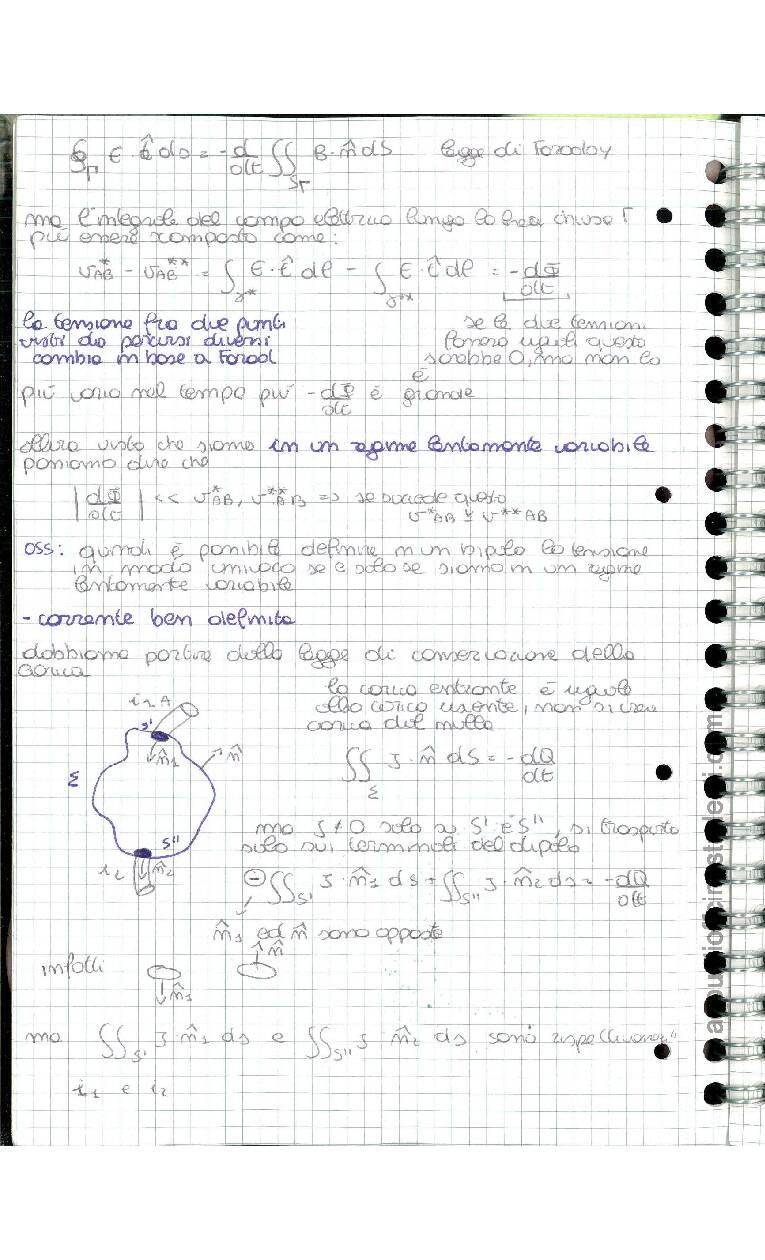 ∮_Γ E · t̂ ds = -d/dt ∬_SΓ B · n̂ dS legge di Faraday
ma l'integrale del campo elettrico lungo la linea chiusa Γ
può essere scomposto come:
v*AB - v**AB = ∫_γ* E · t̂ dl - ∫_γ** E · t̂ dl = -dΦ/dt
la tensione fra due punti
visti da percorsi diversi
cambia in base a Farad
se le due tensioni
fossero uguali questo
sarebbe 0, ma non lo
è
più varia nel tempo più -dΦ/dt è grande
allora visto che siamo in un regime lentamente variabile
possiamo dire che
|dΦ/dt| << v*AB, v**AB => se succede questo
v*AB ≅ v**AB
oss: quindi è possibile definire in un bipolo la tensione
in modo univoco se e solo se siamo in un regime
lentamente variabile
- corrente ben definita
dobbiamo partire dalla legge di conservazione della
carica
la carica entrante è uguale
alla carica uscente, non si crea
carica dal nulla
i1 A
S'
n̂1
n̂
Σ
S''
i2
n̂2
∬_Σ J · n̂ dS = -dQ/dt
ma J ≠ 0 solo su S' e S'', si trasporta
solo sui terminali del dipolo
⊖∬_S' J · n̂1 ds + ∬_S'' J · n̂2 ds = -dQ/dt
n̂1 ed n̂ sono opposte
infatti
n̂1
n̂
ma ∬_S' J · n̂1 ds e ∬_S'' J · n̂2 ds sono
i1 e i2
appuntiofficinastudenti.com